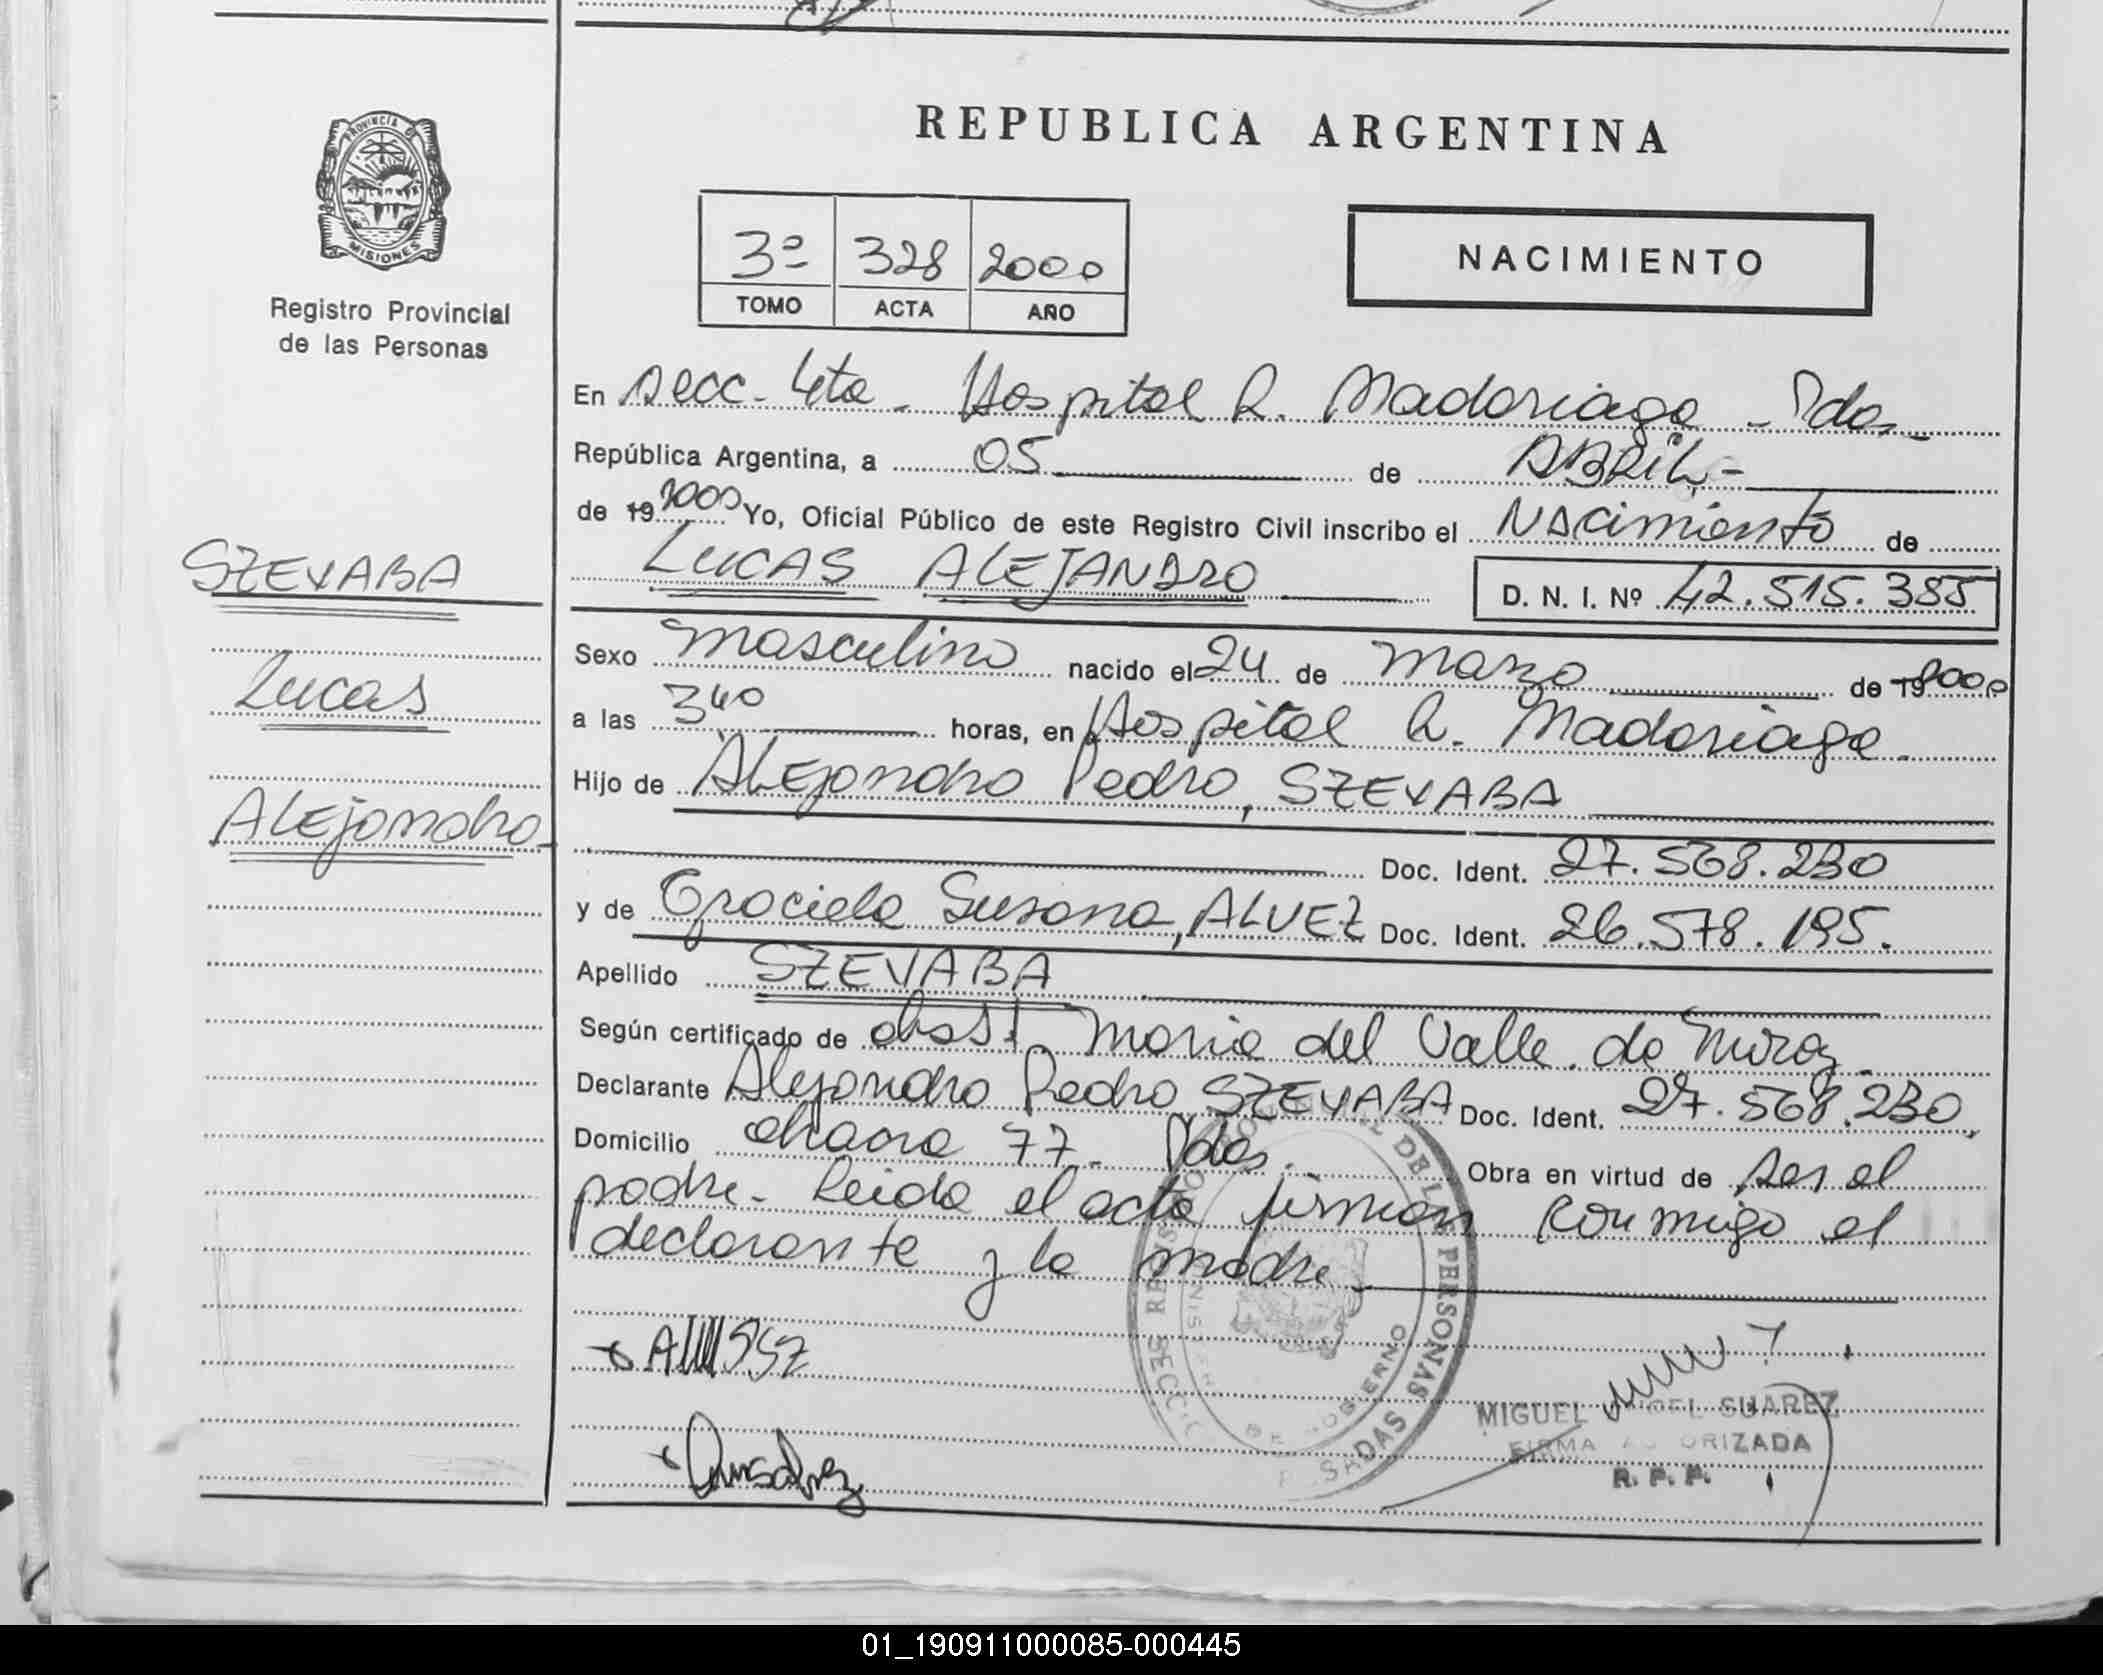 REPUBLICA ARGENTINA
PROVINCIA DE
MISIONES
Registro Provincial
de las Personas
3º 328 2000
TOMO ACTA AÑO
NACIMIENTO
En Secc. 4ta - Hospital R. Madariaga - Pdas -
República Argentina, a 05 de ABRIL -
de 19 2000 Yo, Oficial Público de este Registro Civil inscribo el Nacimiento de
LUCAS ALEJANDRO D. N. I. Nº 42.515.385
SZEVABA
Lucas
Alejandro -
Sexo Masculino nacido el 24 de Marzo de 19 2000
a las 3 40 horas, en Hospital R. Madariaga -
Hijo de Alejandro Pedro, SZEVABA
Doc. Ident. 27.568.230
y de Graciela Susana, ALVEZ Doc. Ident. 26.578.195.
Apellido SZEVABA
Según certificado de obst. Maria del Valle de
Declarante Alejandro Pedro SZEVABA Doc. Ident. 27.568.230,
Domicilio chacra 77 - Pdas. Obra en virtud de ser el
padre - Leida el acta firman conmigo el
declarante y la madre
DE LAS PERSONAS
GOBIERNO
MIGUEL SUAREZ
FIRMA AUTORIZADA
R. P. P.
01_190911000085-000445